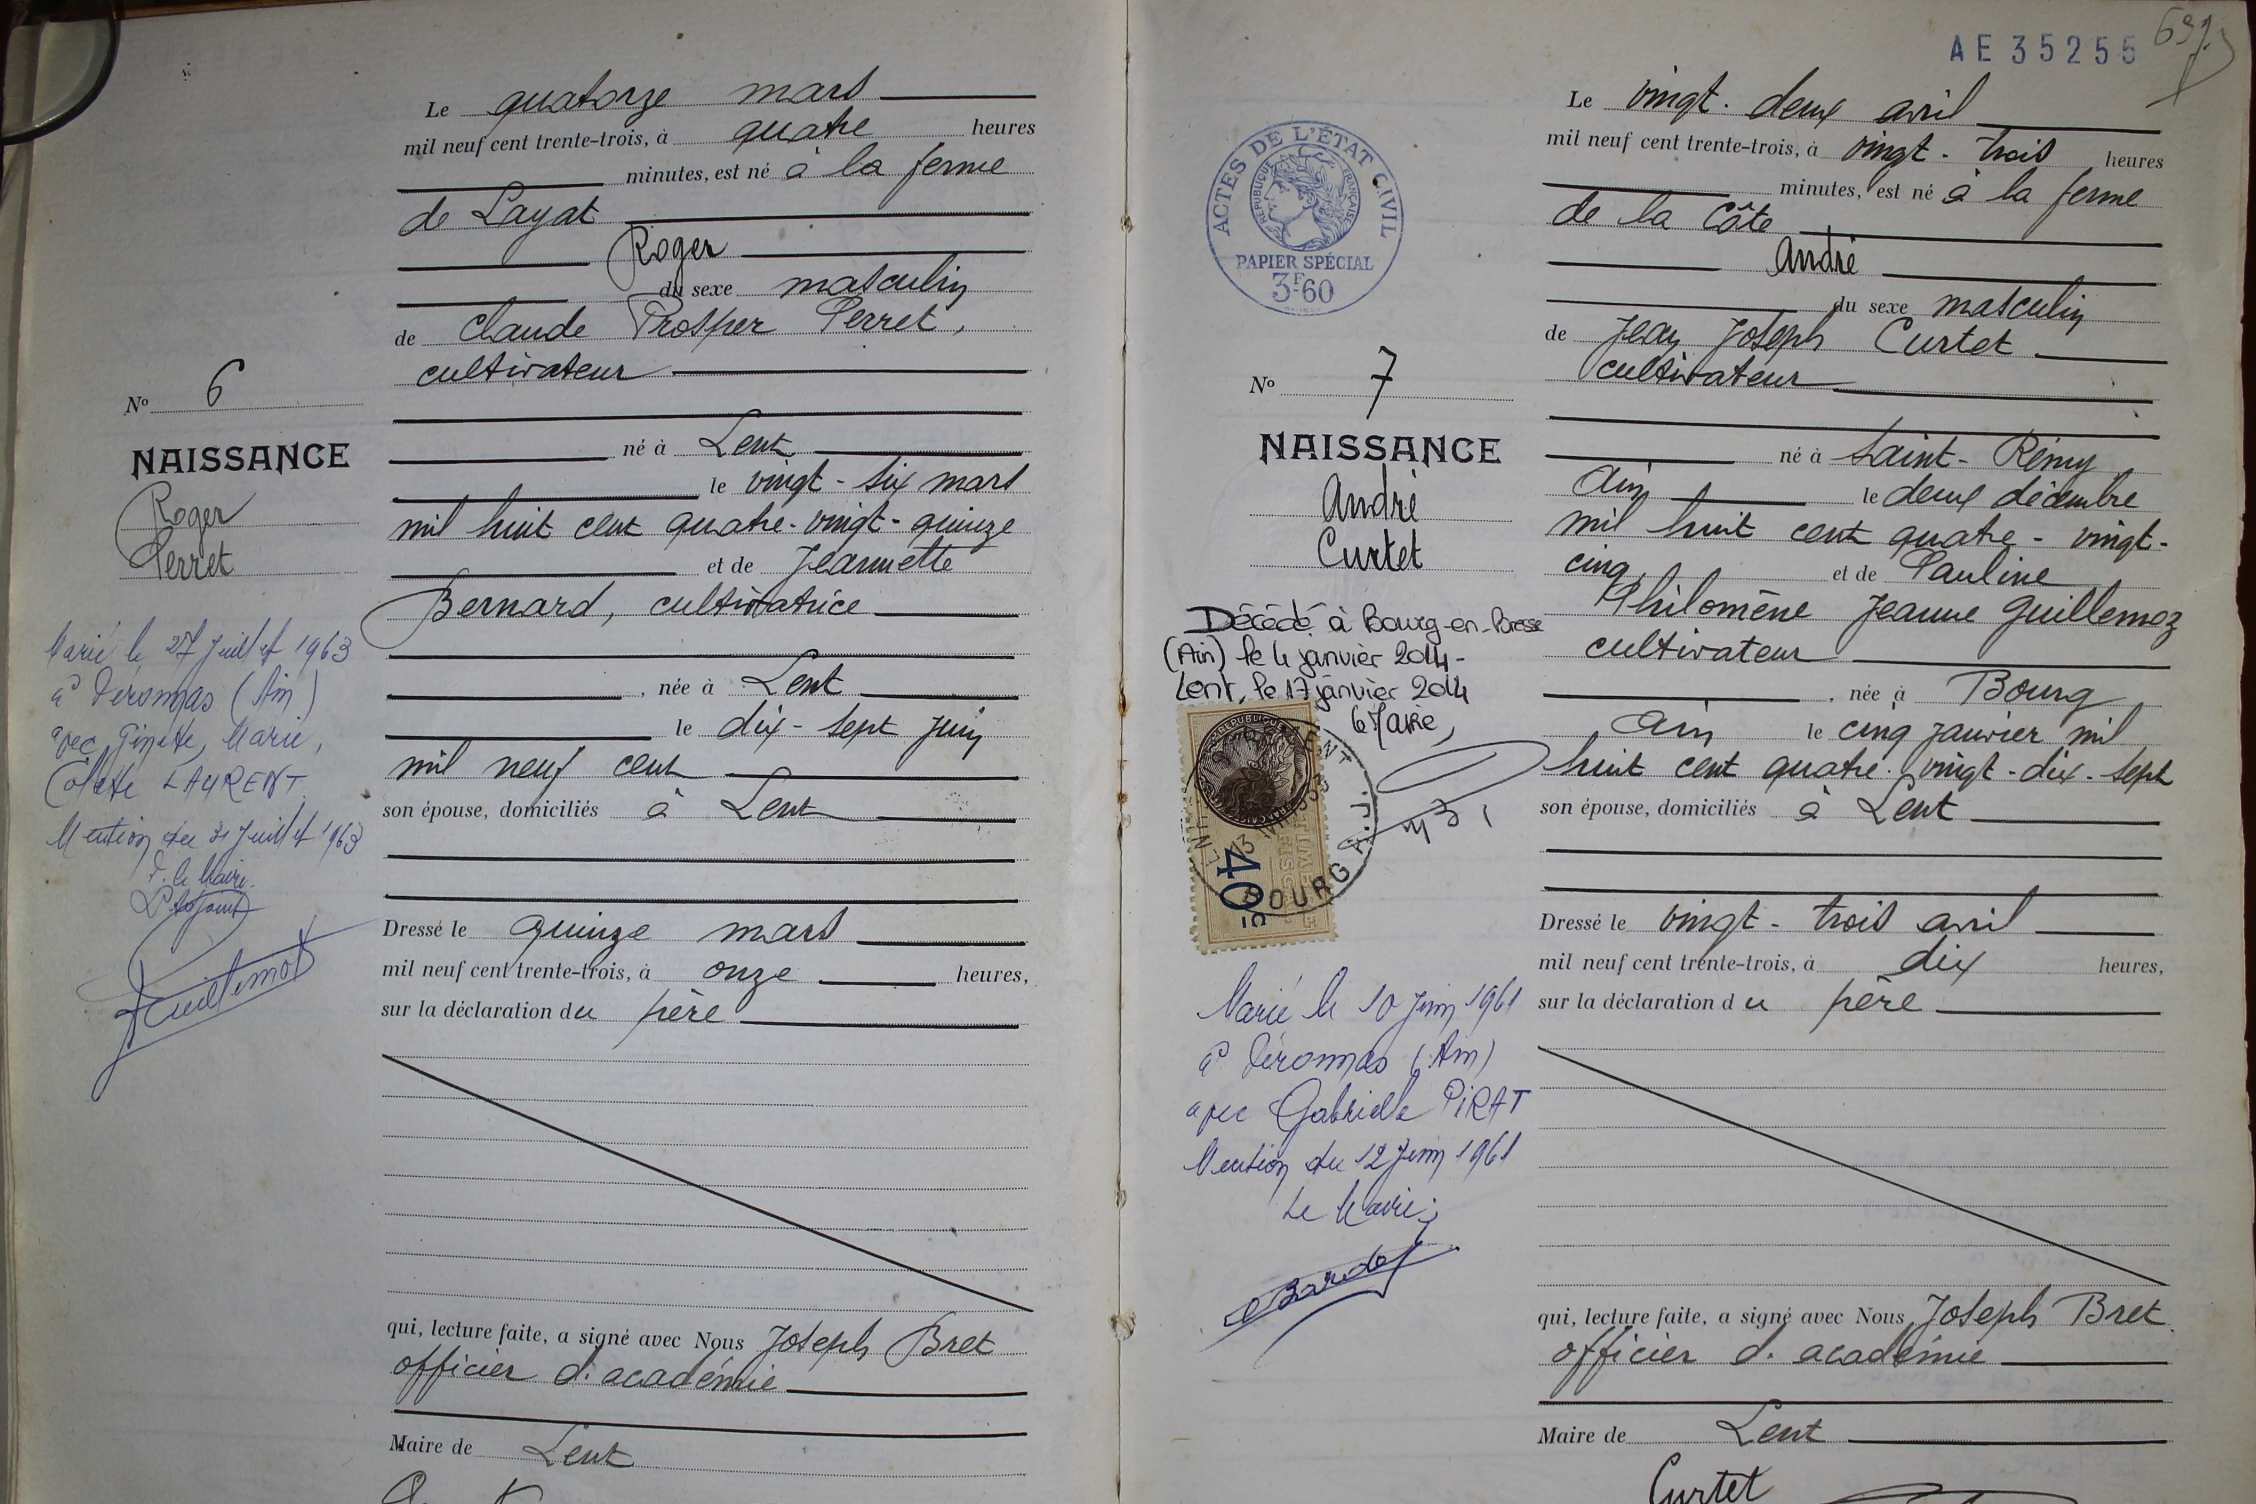 Le quatorze mars
mil neuf cent trente-trois, à quatre heures
minutes, est né à la ferme
de Layat
Roger
du sexe masculin
de Claude Prosper Perret,
cultivateur
né à Lent
le vingt-six mars
mil huit cent quatre-vingt-quinze
et de Jeannette
Bernard, cultivatrice
, née à Lent
le dix-sept juin
mil neuf cent
son épouse, domiciliés à Lent
Dressé le quinze mars
mil neuf cent trente-trois, à onze heures,
sur la déclaration du père
qui, lecture faite, a signé avec Nous Joseph Bret
officier d'académie
Maire de Lent
No 6
NAISSANCE
Roger
Perret
Marié le 27 Juillet 1963
à Péronnas (Ain)
avec Ginette, Marie,
Colette LAURENT
Mention du 31 Juillet 1963
P. le Maire
L'adjoint
AE 35255
Le vingt-deux avril
mil neuf cent trente-trois, à vingt-trois heures
minutes, est né à la ferme
de la Côte
André
du sexe masculin
de Jean Joseph Curtet
cultivateur
né à Saint-Rémy
Ain le deux décembre
mil huit cent quatre-vingt-
cinq et de Pauline
Philomène Jeanne Guillemoz
cultivateur
, née à Bourg
Ain le cinq janvier mil
huit cent quatre-vingt-dix-sept
son épouse, domiciliés à Lent
Dressé le vingt-trois avril
mil neuf cent trente-trois, à dix heures,
sur la déclaration du père
qui, lecture faite, a signé avec Nous Joseph Bret
officier d'académie
Maire de Lent
Curtet
ACTES DE L'ÉTAT CIVIL
RÉPUBLIQUE FRANÇAISE
PAPIER SPÉCIAL
3F60
No 7
NAISSANCE
André
Curtet
Décédé à Bourg-en-Bresse
(Ain) le 4 janvier 2014-
Lent, le 17 janvier 2014
le Maire,
40
BOURG A.J.
Marié le 10 Juin 1961
à Péronnas (Ain)
avec Gabrielle PIRAT
Mention du 12 Juin 1961
Le Maire